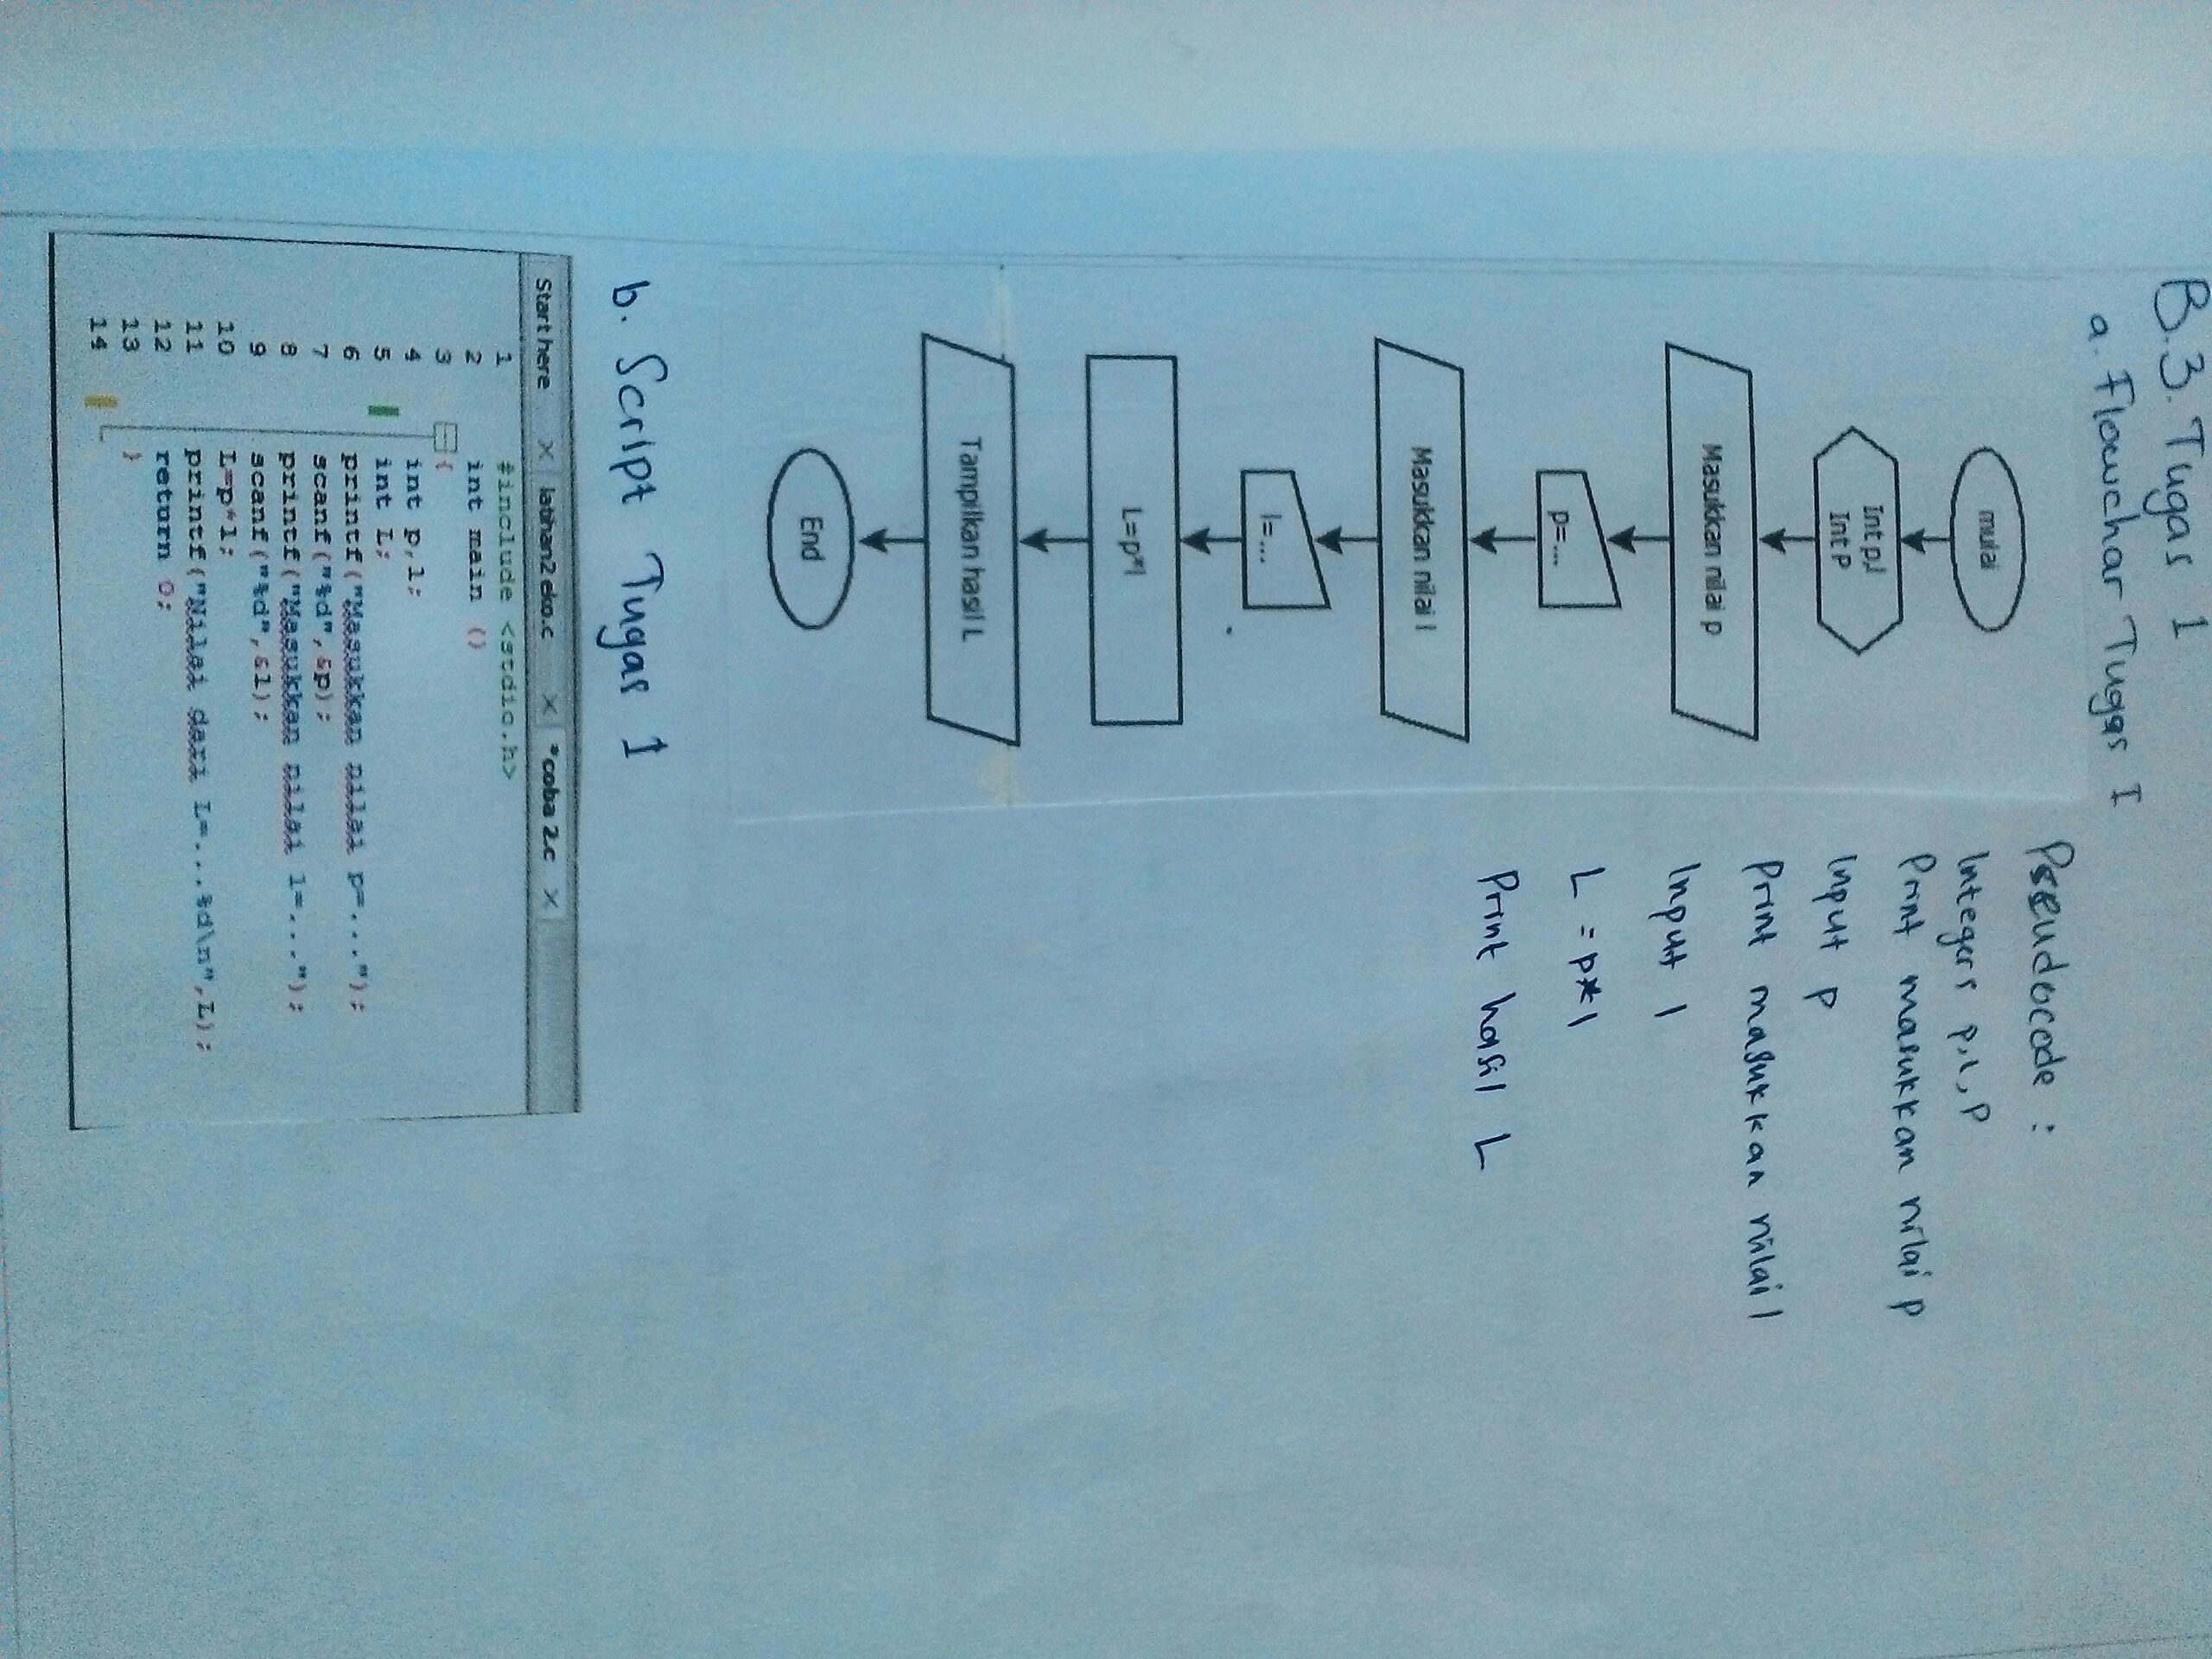 B.3. Tugas 1
a. Flowchar Tugas I
mulai
Int p,l
Int P
Masukkan nilai p
p=...
Masukkan nilai l
l=...
L=p*l
Tampilkan hasil L
End
Pseudocode :
Integers p,l,P
Print masukkan nilai p
Input p
Print masukkan nilai l
Input l
L = p*l
Print hasil L
b. Script Tugas 1
Start here X latihan2 eko.c X *coba 2.c X
1 #include <stdio.h>
2 int main ()
3 {
4 int p,l;
5 int L;
6 printf("Masukkan nilai p=...");
7 scanf("%d",&p);
8 printf("Masukkan nilai l=...");
9 scanf("%d",&l);
10 L=p*l;
11 printf("Nilai dari L=...%d\n",L);
12 return 0;
13 }
14